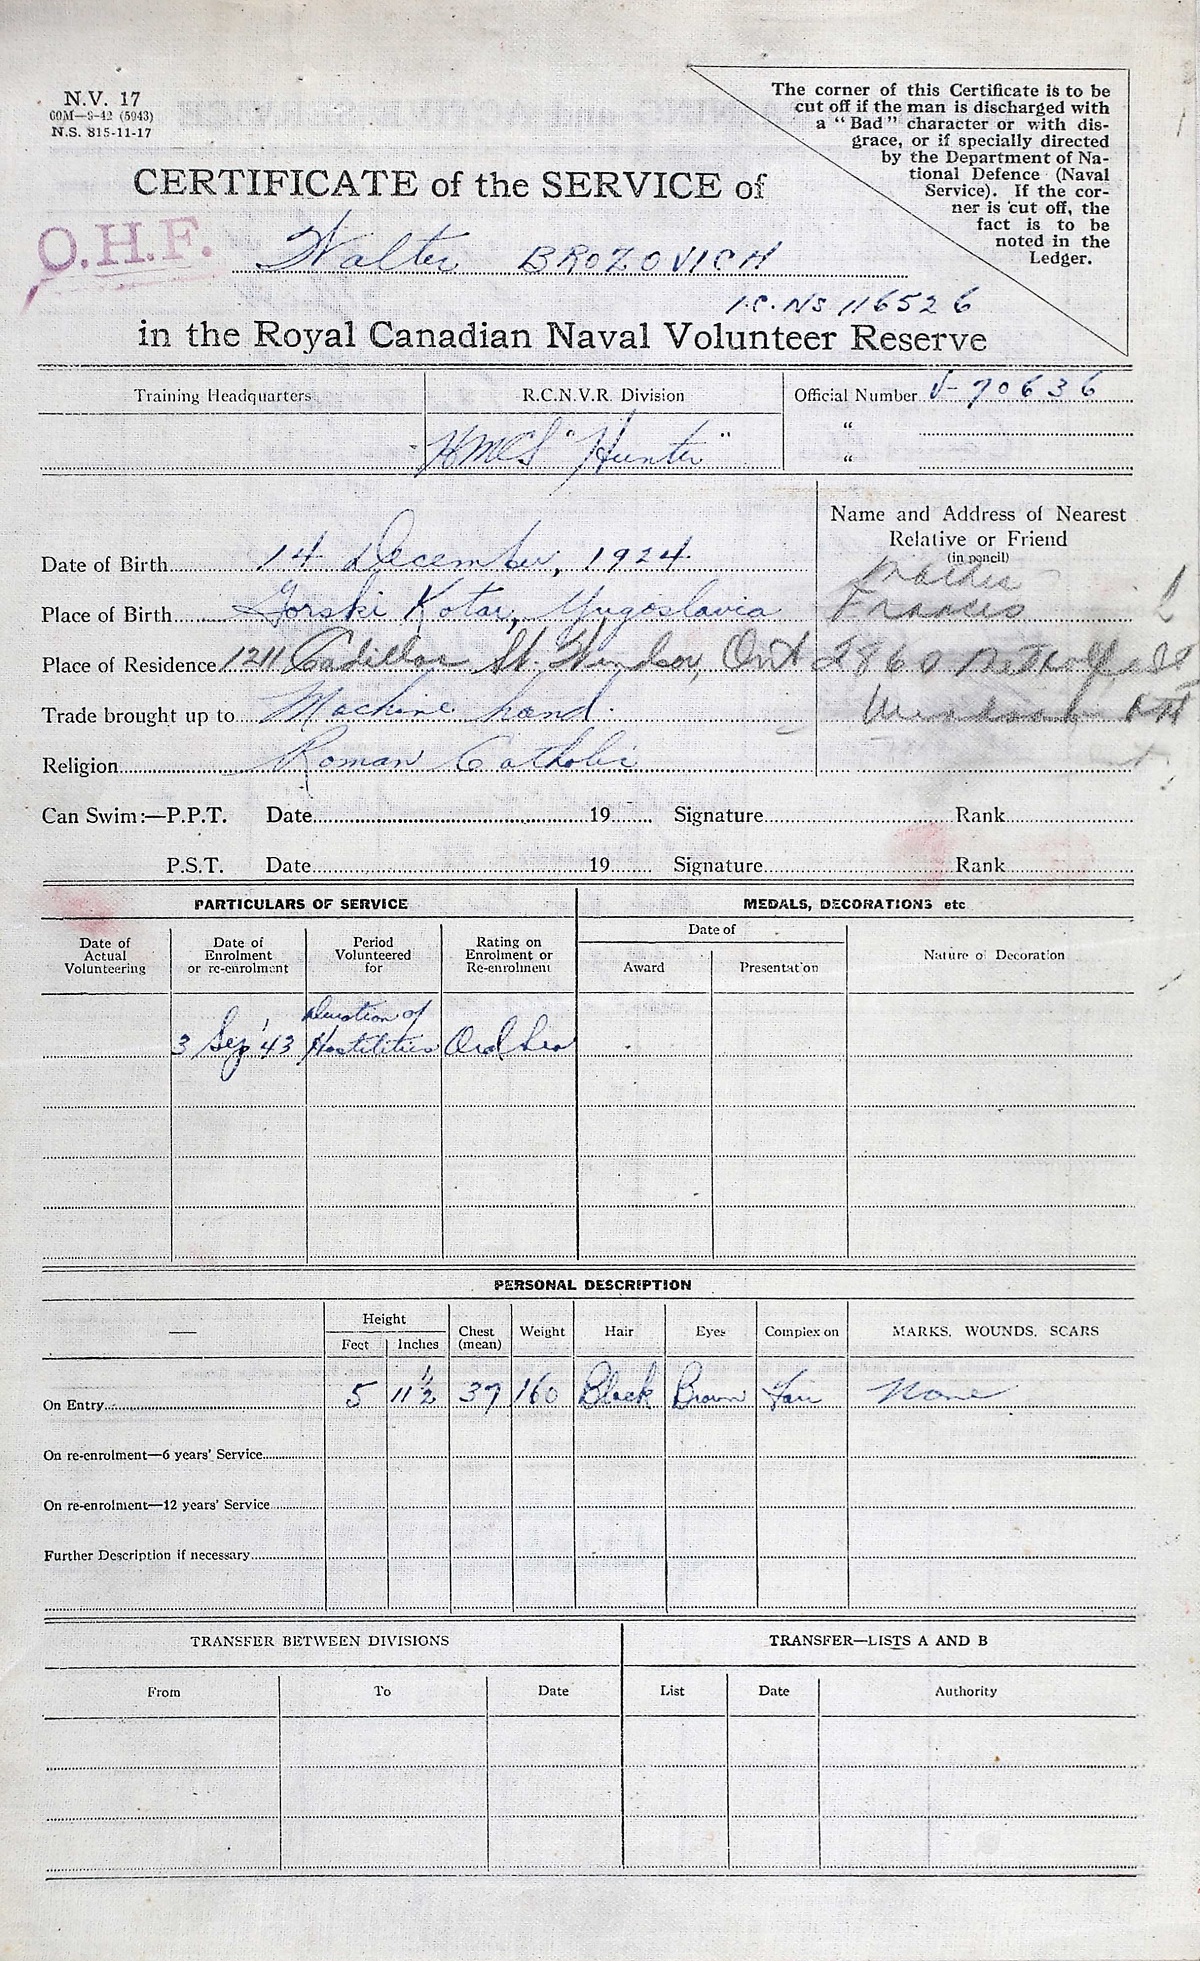 N.V. 17
60M—9-42 (5943)
N.S. 815-11-17
The corner of this Certificate is to be
cut off if the man is discharged with
a "Bad" character or with dis-
grace, or if specially directed
by the Department of Na-
tional Defence (Naval
Service). If the cor-
ner is cut off, the
fact is to be
noted in the
Ledger.
CERTIFICATE of the SERVICE of
O.H.F.
Walter BROZOVICH
I.C. NS 116526
in the Royal Canadian Naval Volunteer Reserve
Training Headquarters R.C.N.V.R. Division Official Number V-70636
"
HMCS "Hunter" "
Name and Address of Nearest
Relative or Friend
(in pencil)
Date of Birth 14 December, 1924 Mother
Place of Birth Gorski Kotar, Yugoslavia Frances
Place of Residence 1211 Cadillac St. Windsor, Ont 2860
Trade brought up to Machine hand. Windsor Ont
Religion Roman Catholic
Can Swim:—P.P.T. Date 19 Signature Rank
P.S.T. Date 19 Signature Rank
PARTICULARS OF SERVICE MEDALS, DECORATIONS etc
Date of Actual Volunteering Date of Enrolment or re-enrolment Period Volunteered for Rating on Enrolment or Re-enrolment Date of Award Presentation Nature of Decoration
Duration of
3 Sep '43 Hostilities Ord Sea
PERSONAL DESCRIPTION
— Height Feet Inches Chest (mean) Weight Hair Eyes Complexion MARKS, WOUNDS, SCARS
On Entry 5 11½ 37 160 Black Brown Fair None
On re-enrolment—6 years' Service
On re-enrolment—12 years' Service
Further Description if necessary
TRANSFER BETWEEN DIVISIONS TRANSFER—LISTS A AND B
From To Date List Date Authority